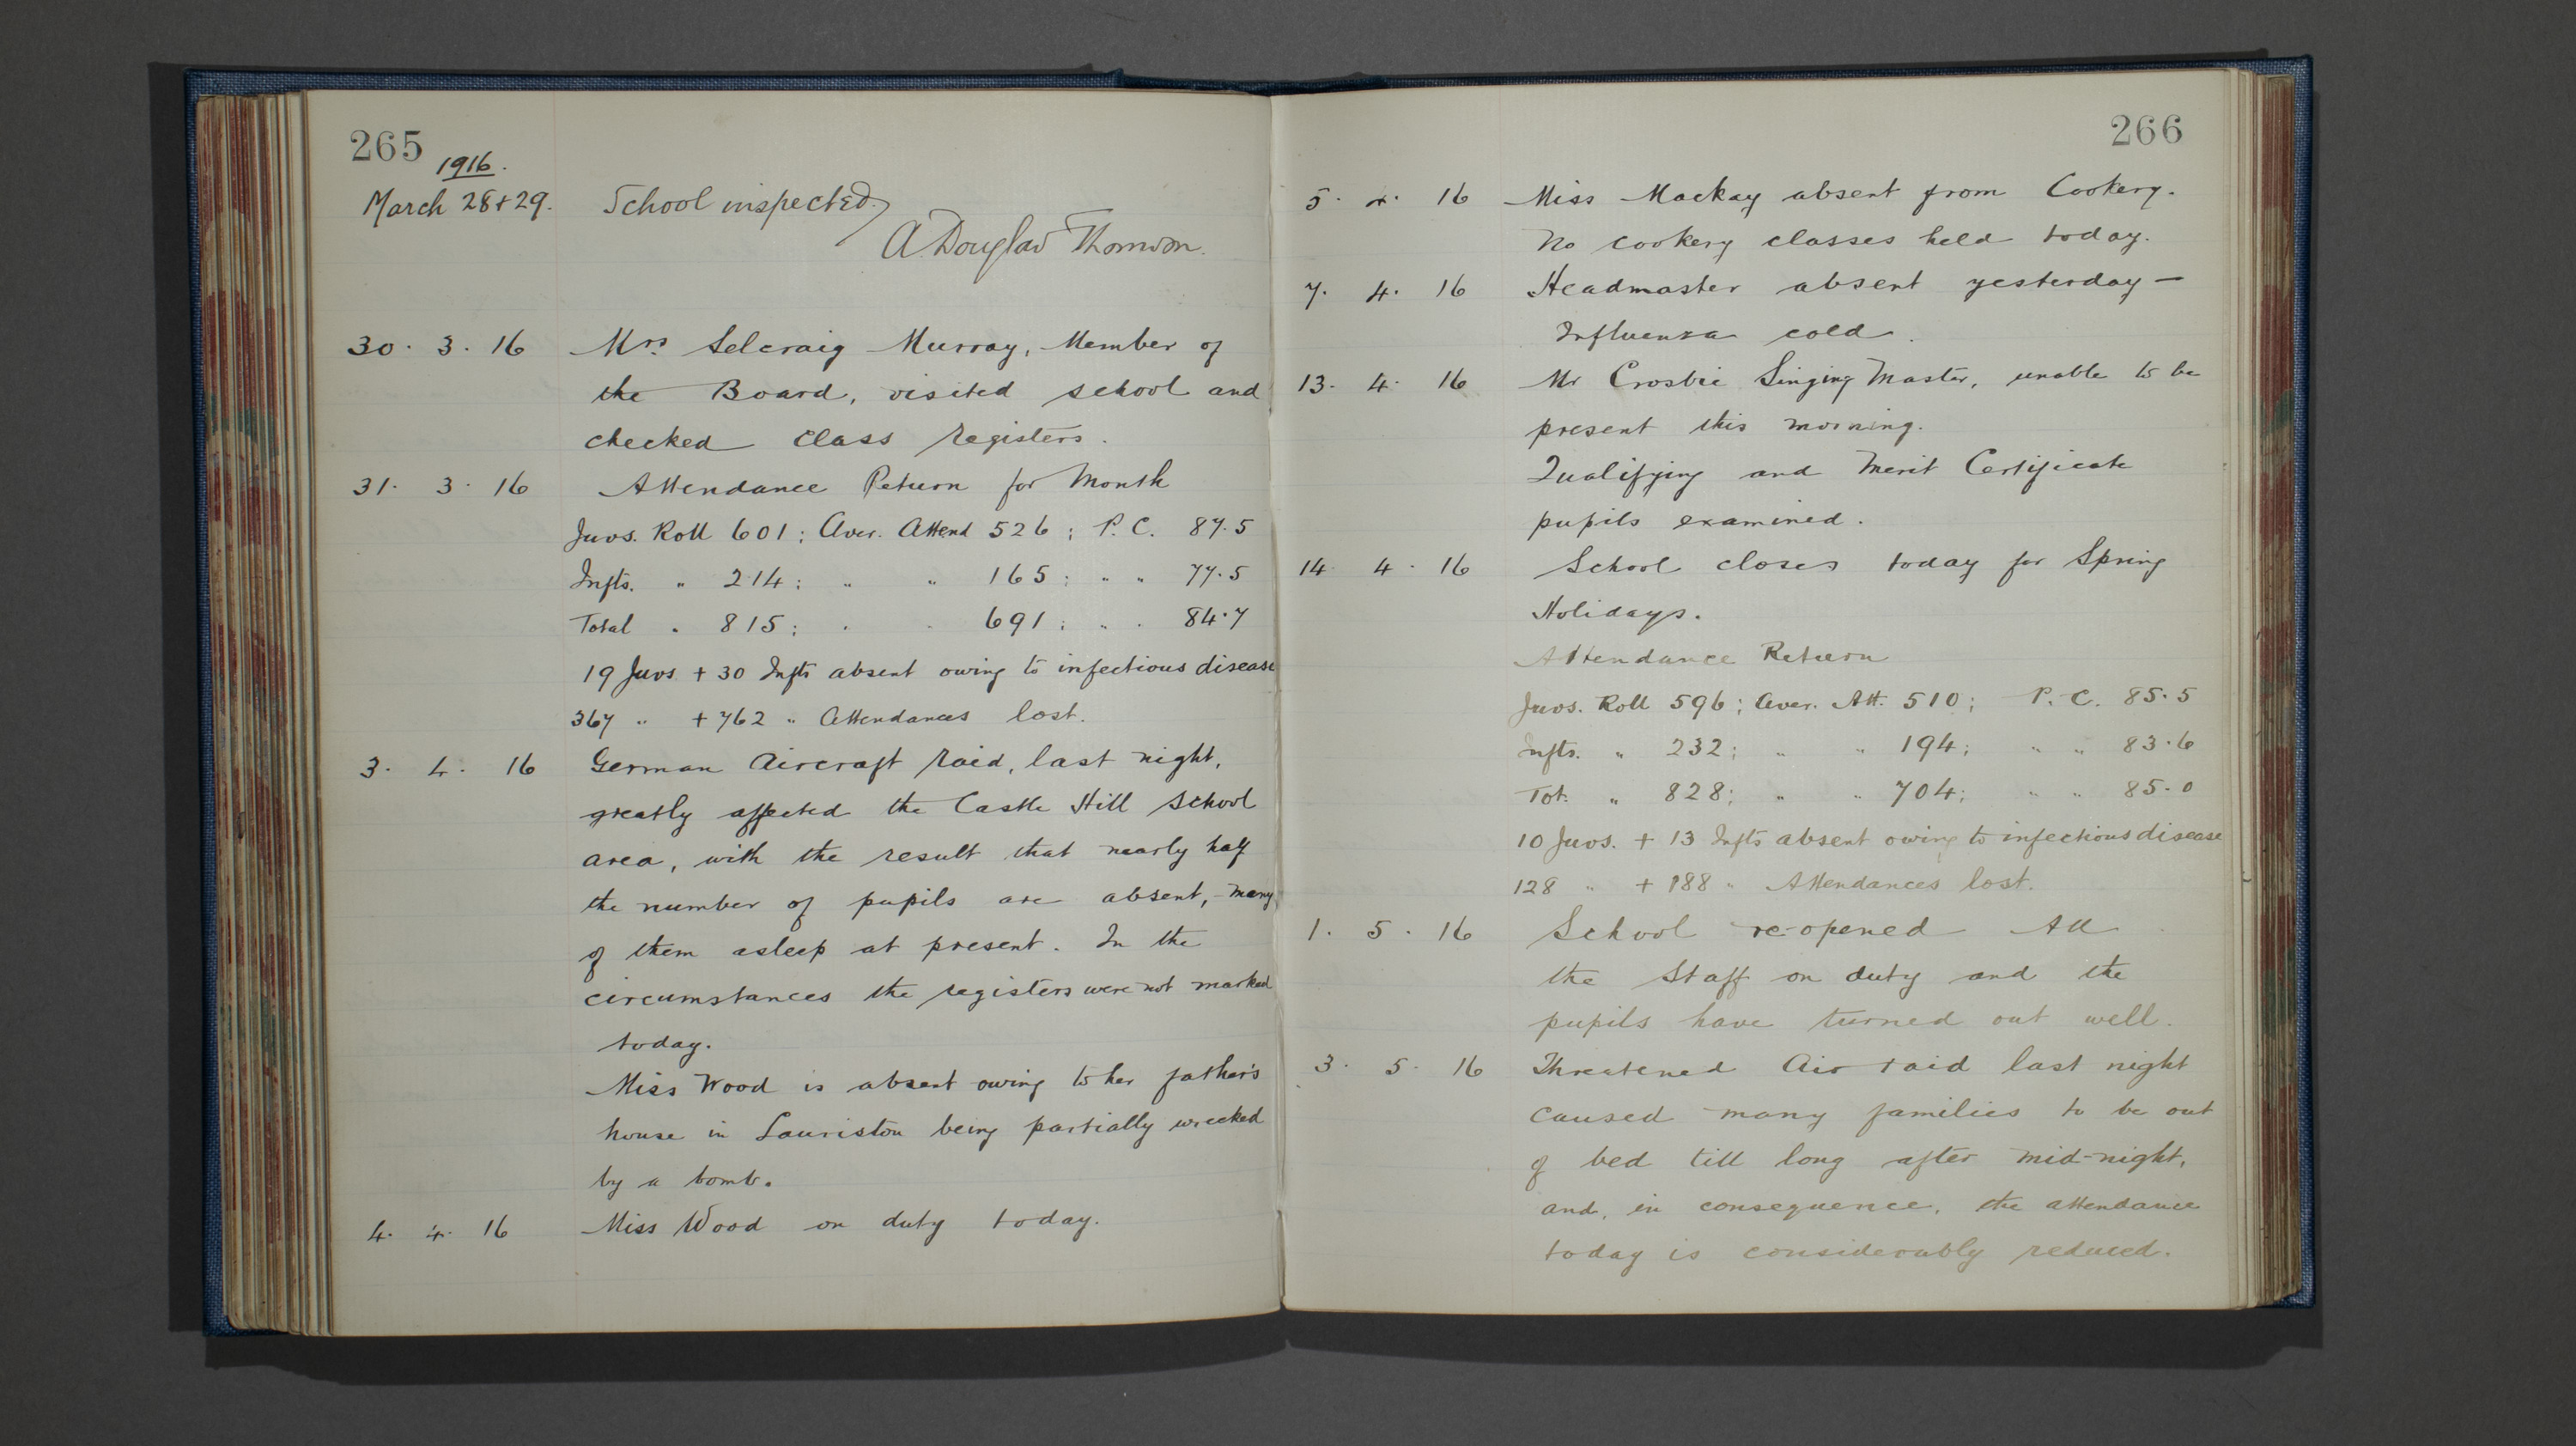 265
1916.
March 28+29. School inspected.
A. Douglas Thomson.
30. 3. 16 Mrs. Selcraig Murray, Member of
the Board, visited school and
checked class registers.
31. 3. 16 Attendance Return for Month
Juvs. Roll 601; Aver. Attend 526; P.C. 87.5
Infts. " 214; " " 165; " " 77.5
Total " 815; " " 691; " " 84.7
19 Juvs + 30 Infts absent owing to infectious disease
367 " + 762 " Attendances lost.
3. 4. 16 German Aircraft raid, last night,
greatly affected the Castle Hill School
area, with the result that nearly half
the number of pupils are absent, - many
of them asleep at present. In the
circumstances the registers were not marked
today.
Miss Wood is absent owing to her father's
house in Lauriston being partially wrecked
by a bomb.
4. 4. 16 Miss Wood on duty today.
266
5. 4. 16 Miss Mackay absent from Cookery.
No cookery classes held today.
7. 4. 16 Headmaster absent yesterday —
Influenza cold.
13. 4. 16 Mr Crosbie Singing Master, unable to be
present this morning.
Qualifying and Merit Certificate
pupils examined.
14 4. 16 School closes today for Spring
Holidays.
Attendance Return
Juvs. Roll 596; Aver. Att. 510; P.C. 85.5
Infts. " 232; " " 194; " " 83.6
Tot. " 828; " " 704; " " 85.0
10 Juvs. + 13 Infts absent owing to infectious disease
128 " + 188 " Attendances lost.
1. 5. 16 School re-opened All
the Staff on duty and the
pupils have turned out well.
3. 5. 16 Threatened Air raid last night
caused many families to be out
of bed till long after mid-night,
and, in consequence, the attendance
today is considerably reduced.